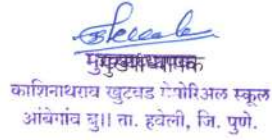 मुख्याध्यापक
काशिनाथराव खुटवड मेमोरिअल स्कूल
आंबेगांव बु॥ ता. हवेली, जि. पुणे.